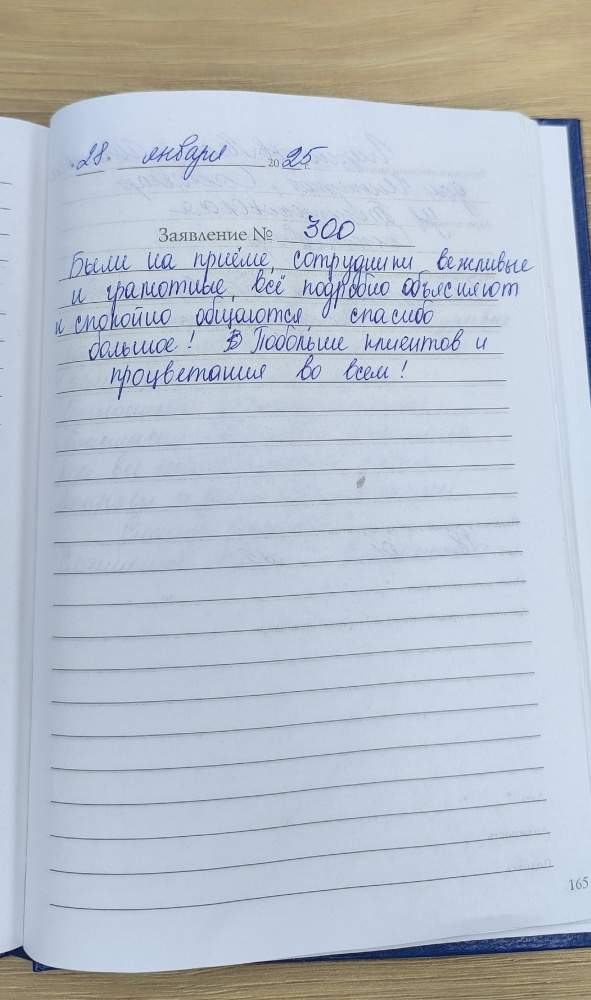 28. января 2025
Заявление № 300
Были на приёме, сотрудники вежливые
и грамотные, всё подробно объясняют
и спокойно общаются, спасибо
большое! Побольше клиентов и
процветания во всем!
165